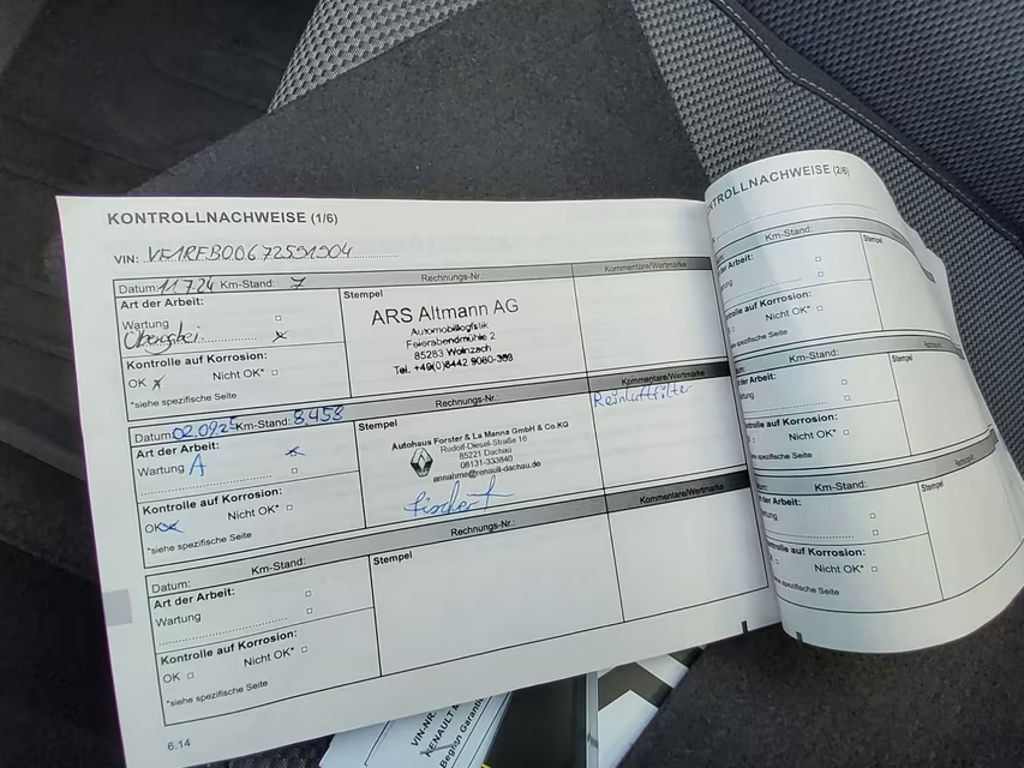 KONTROLLNACHWEISE (1/6)
VIN: VF1RFB00672591904
Datum: 11.7.24 Km-Stand: 7
Rechnungs-Nr.:
Kommentare/Wertmarke
Art der Arbeit:
Wartung
Übergabe
Kontrolle auf Korrosion:
OK x Nicht OK*
*siehe spezifische Seite
Stempel
ARS Altmann AG
Automobillogistik
Feierabendmühle 2
85283 Wolnzach
Tel. +49(0)8442 9080-303
Datum 02.09.25 Km-Stand: 8.458
Rechnungs-Nr.:
Kommentare/Wertmarke
Art der Arbeit:
Wartung A
Kontrolle auf Korrosion:
OK x Nicht OK*
*siehe spezifische Seite
Stempel
Autohaus Forster & La Manna GmbH & Co.KG
Rudolf-Diesel-Straße 16
85221 Dachau
08131-333840
annahme@renault-dachau.de
Reinluftfilter
Datum: Km-Stand:
Rechnungs-Nr.:
Kommentare/Wertmarke
Art der Arbeit:
Wartung
Kontrolle auf Korrosion:
OK Nicht OK*
*siehe spezifische Seite
Stempel
6.14
NTROLLNACHWEISE (2/6)
Km-Stand:
Stempel
der Arbeit:
tung
ntrolle auf Korrosion:
Nicht OK*
spezifische Seite
Km-Stand:
Stempel
t der Arbeit:
ntrolle auf Korrosion:
Nicht OK*
spezifische Seite
Km-Stand:
Stempel
der Arbeit:
ntrolle auf Korrosion:
Nicht OK*
spezifische Seite
VIN-NR.
RENAULT
Beginn Garantie